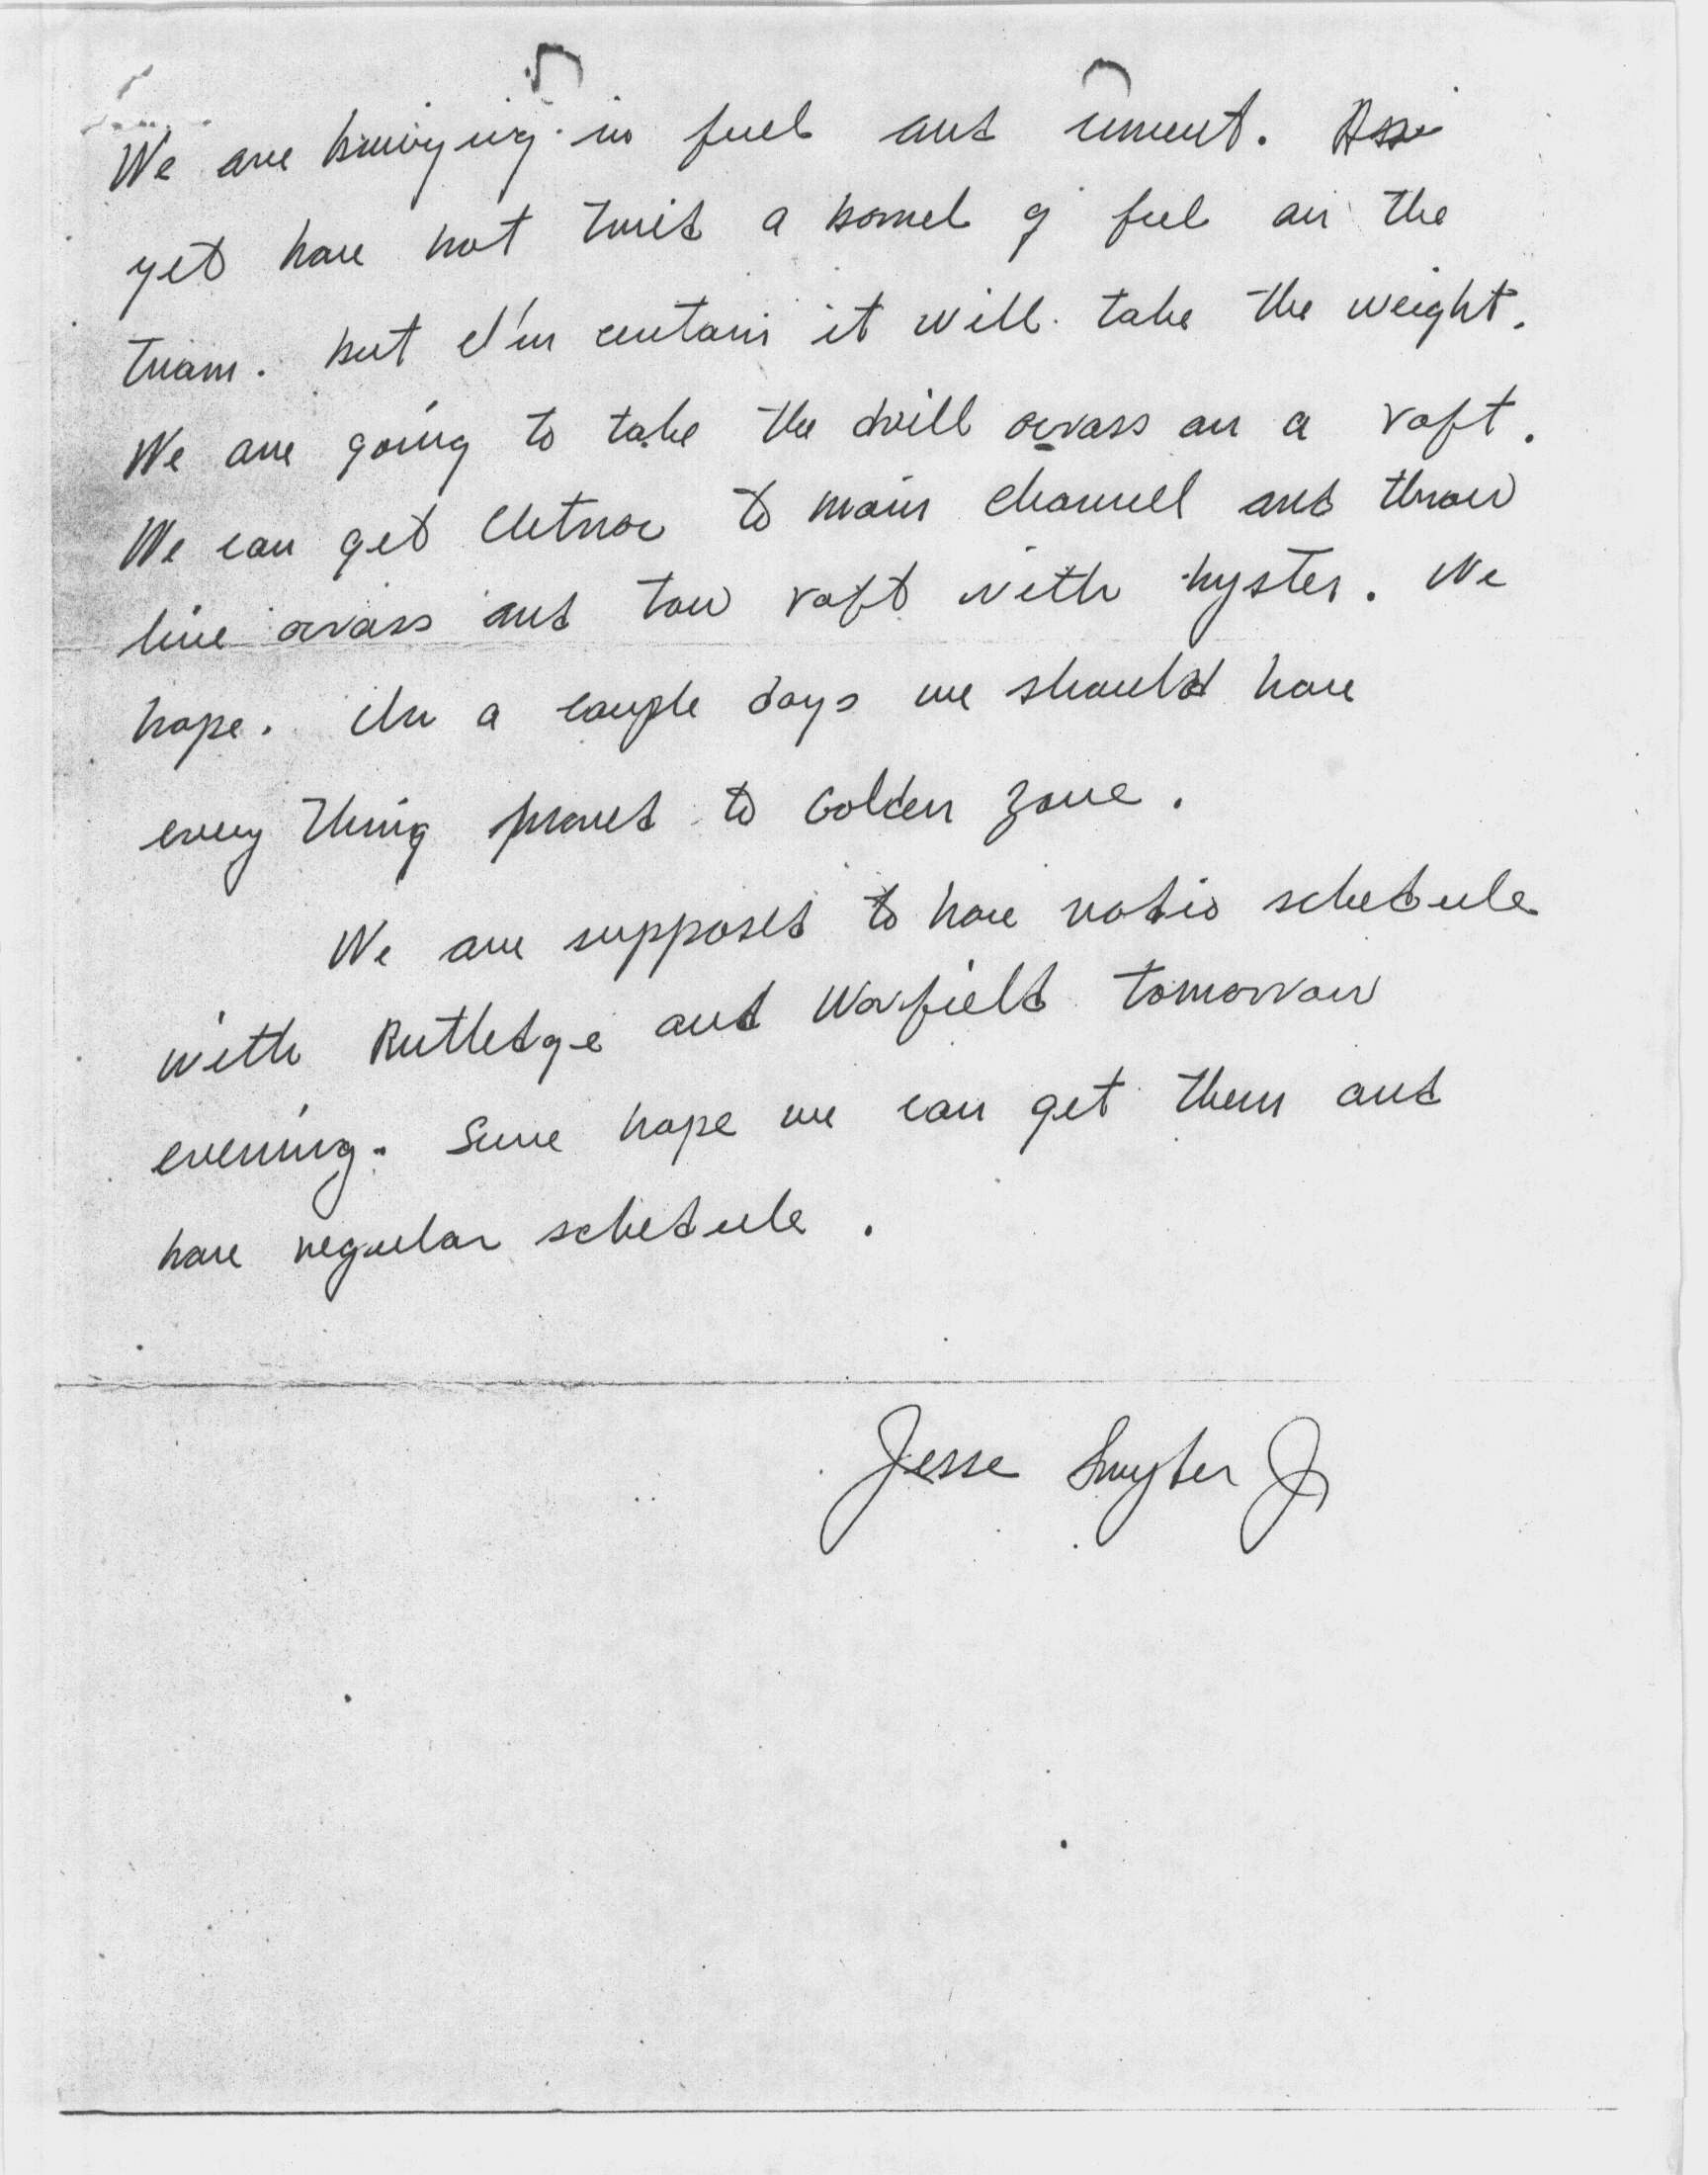 We are bringing in fuel and cement. As
yet have not tried a barrel of fuel on the
tram. but I'm certain it will take the weight.
We are going to take the drill across on a raft.
We can get Cletrac to main channel and throw
line across and tow raft with hyster. We
hope. In a couple days we should have
every thing moved to Golden Zone.
We are supposed to have radio schedule
with Rutledge and Warfield tomorrow
evening. Sure hope we can get them and
have regular schedule.
Jesse Snyder Jr